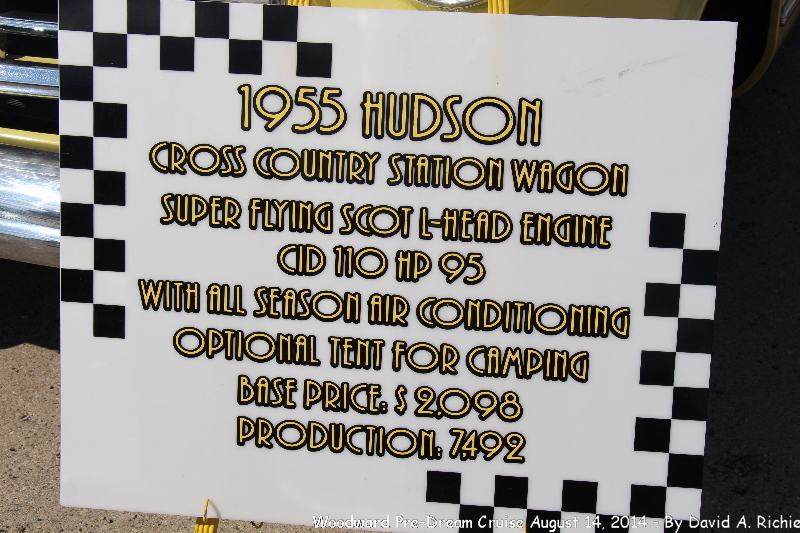 1955 HUDSON
CROSS COUNTRY STATION WAGON
SUPER FLYING SCOT L-HEAD ENGINE
CID 110 HP 95
WITH ALL SEASON AIR CONDITIONING
OPTIONAL TENT FOR CAMPING
BASE PRICE: $ 2,098
PRODUCTION: 7,492
Woodward Pre-Dream Cruise August 14, 2014 - By David A. Richie